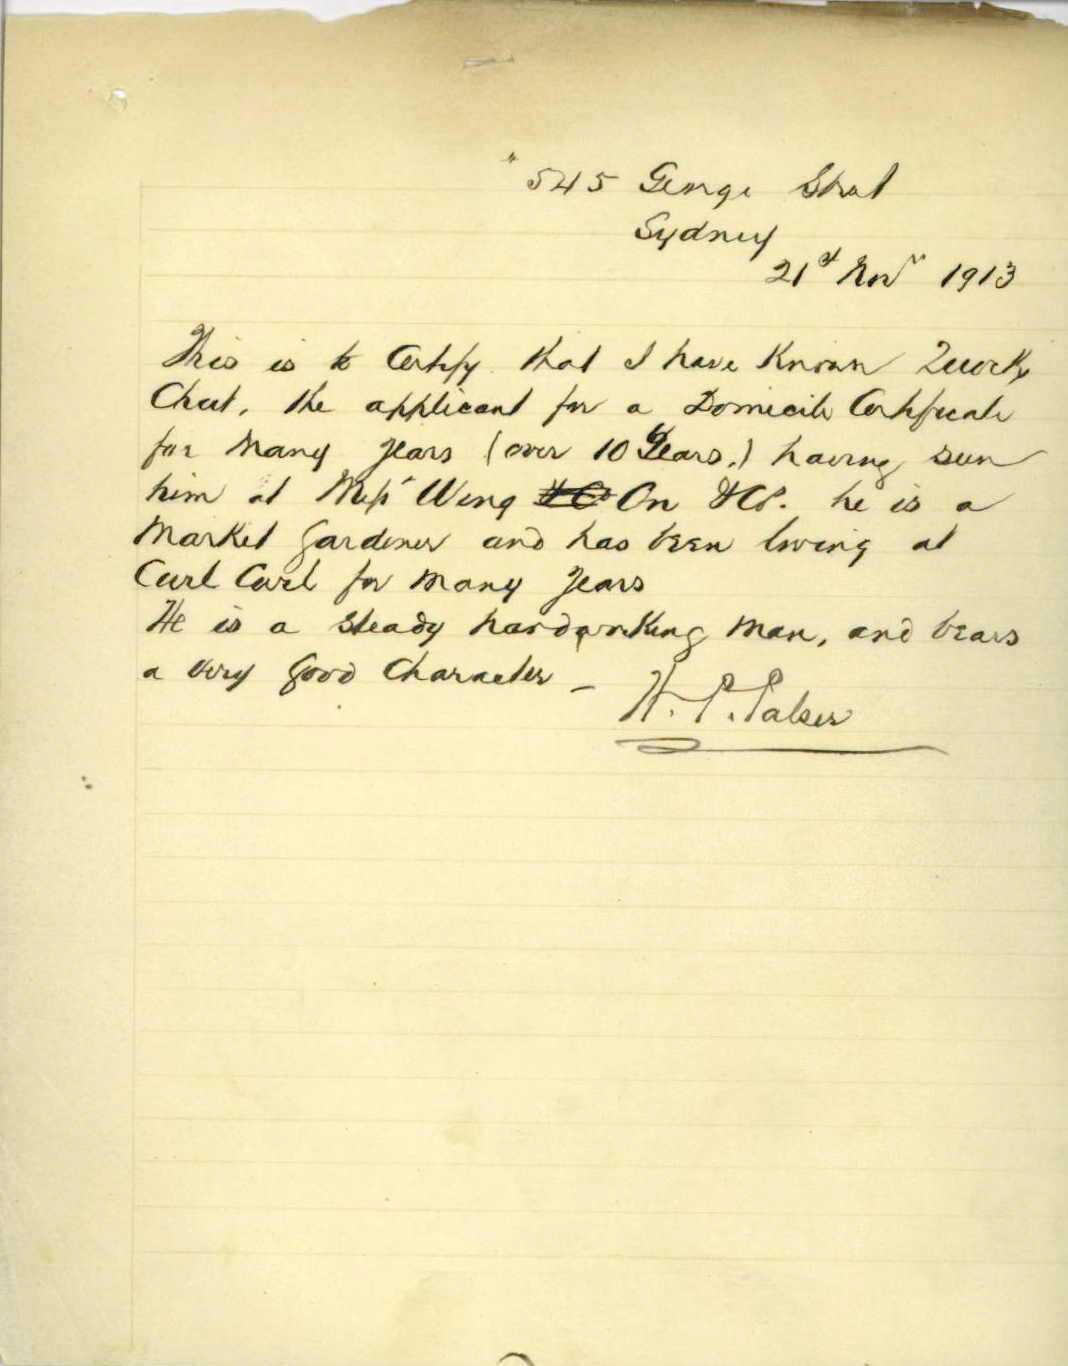 545 George Street
Sydney
21st Nov 1913
This is to Certify that I have Known Quock
Chut, the applicant for a Domicile Certificate
for Many years (over 10 Years.) having seen
him at Messrs Wing On &Co. he is a
Market gardener and has been living at
Curl Curl for many years
He is a steady hardworking man, and bears
a very good Character –
Palser